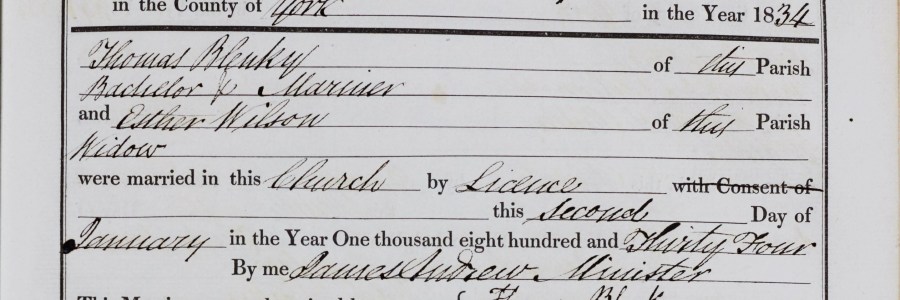 in the County of York in the Year 1834
Thomas Blenky of this Parish
Bachelor & Mariner
and Esther Wilson of this Parish
Widow
were married in this Church by Licence with Consent of
this second Day of
January in the Year One thousand eight hundred and Thirty Four
By me James Andrew Minister
This